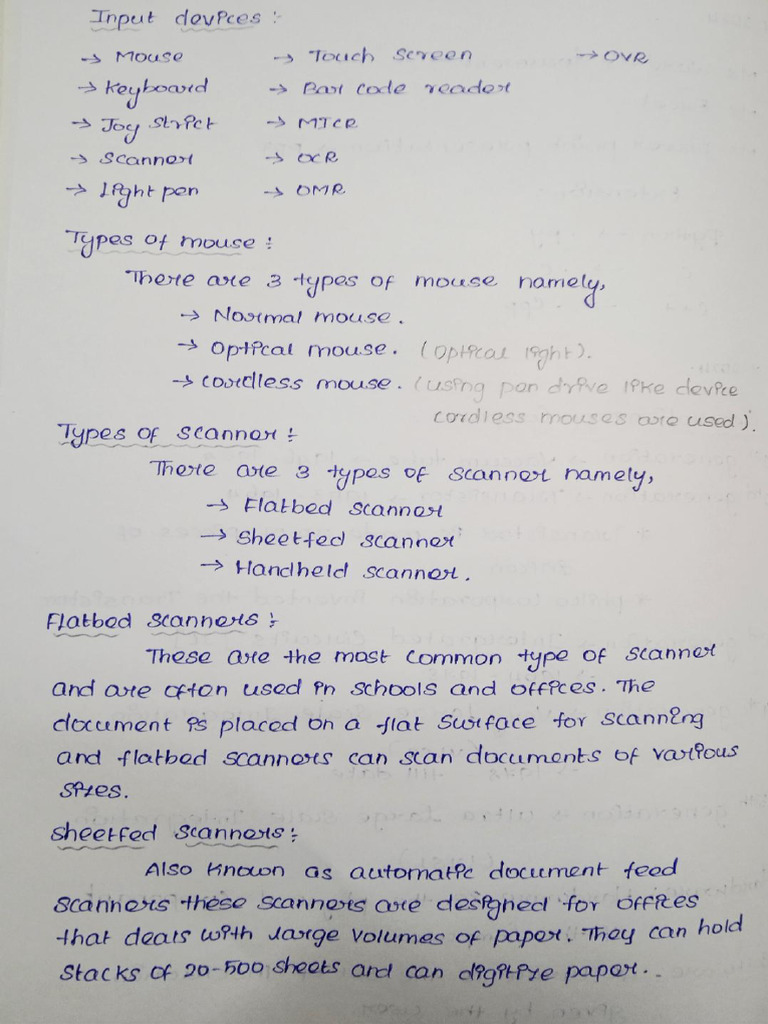 Input devices :-
→ Mouse → Touch screen → OVR
→ Keyboard → Bar code reader
→ Joy strict → MICR
→ Scanner → OCR
→ Light pen → OMR
Types of mouse :
There are 3 types of mouse namely,
→ Normal mouse.
→ Optical mouse. (Optical light).
→ Cordless mouse. (using pan drive like device
cordless mouses are used).
Types of scanner :-
There are 3 types of scanner namely,
→ Flatbed scanner
→ Sheetfed scanner
→ Handheld scanner.
Flatbed scanners :-
These are the most common type of scanner
and are often used in schools and offices. The
document is placed on a flat surface for scanning
and flatbed scanners can scan documents of various
sizes.
Sheetfed scanners :-
Also known as automatic document feed
scanners these scanners are designed for offices
that deals with large volumes of paper. They can hold
stacks of 20-500 sheets and can digitize paper.